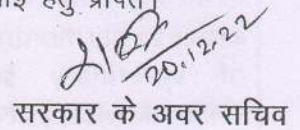 हेतु प्राप्त।
20.12.22
सरकार के अवर सचिव